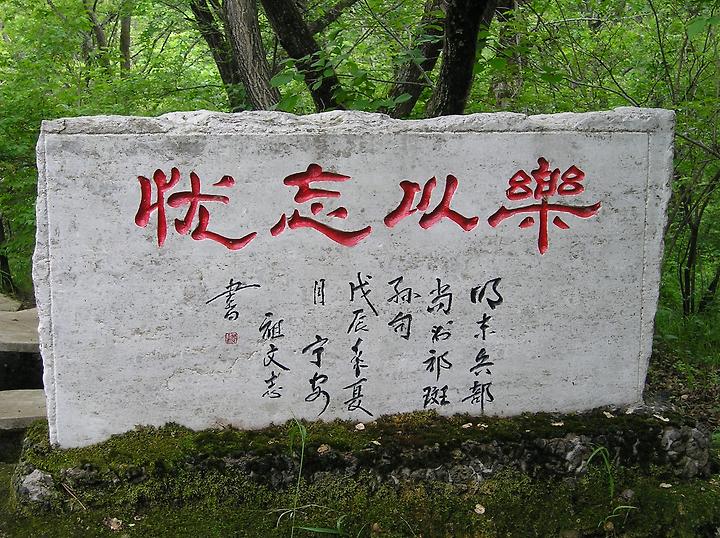 樂以忘忧
明末兵部
尚书祁班
孙句
戊辰季夏
月 宁安
祖文志
書